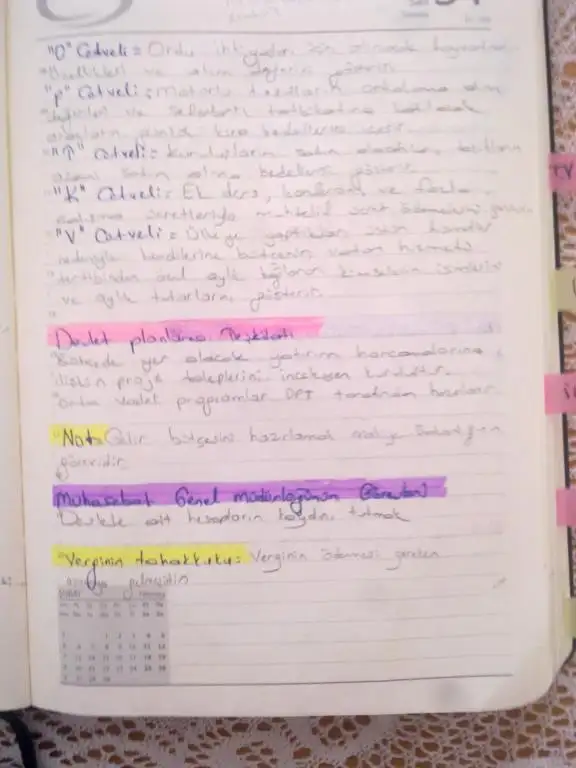 "O" Cetveli = Ordu ihtiyacları için alınacak hayvanların
özellikleri ve alım değerini gösterir.
"P" Cetveli: Motorlu taşıtların ortalama alım
değerleri ve seferberlik tatbikatına katılacak
araçların günlük kira bedellerini içerir.
"T" Cetveli = Kurumların satın alacakları taşıtların
azami satın alma bedellerini gösterir.
"K" Cetveli = Ek ders, konferans ve fazla
çalışma ücretleriyle muhtelif ücret ödemelerini gösterir.
"V" Cetveli = Ülkeye yaptıkları üstün hizmetler
nedeniyle kendilerine bütçenin vatan hizmeti
tertibinden aylık bağlanan kimselerin isimlerini
ve aylık tutarlarını gösterir.
Devlet planlama Teşkilatı
Bütçede yer alacak yatırım harcamalarına
ilişkin proje taleplerini inceleyen kuruluştur.
Orta vadeli programlar DPT tarafından hazırlanır.
"Not: Gelir bütçesini hazırlamak maliye bakanlığının
görevidir.
Muhasebat Genel müdürlüğünün Görevleri
Devlete ait hesapların kaydını tutmak
"Verginin tahakkuku: Verginin ödemesi gereken
aşamaya gelmesidir.